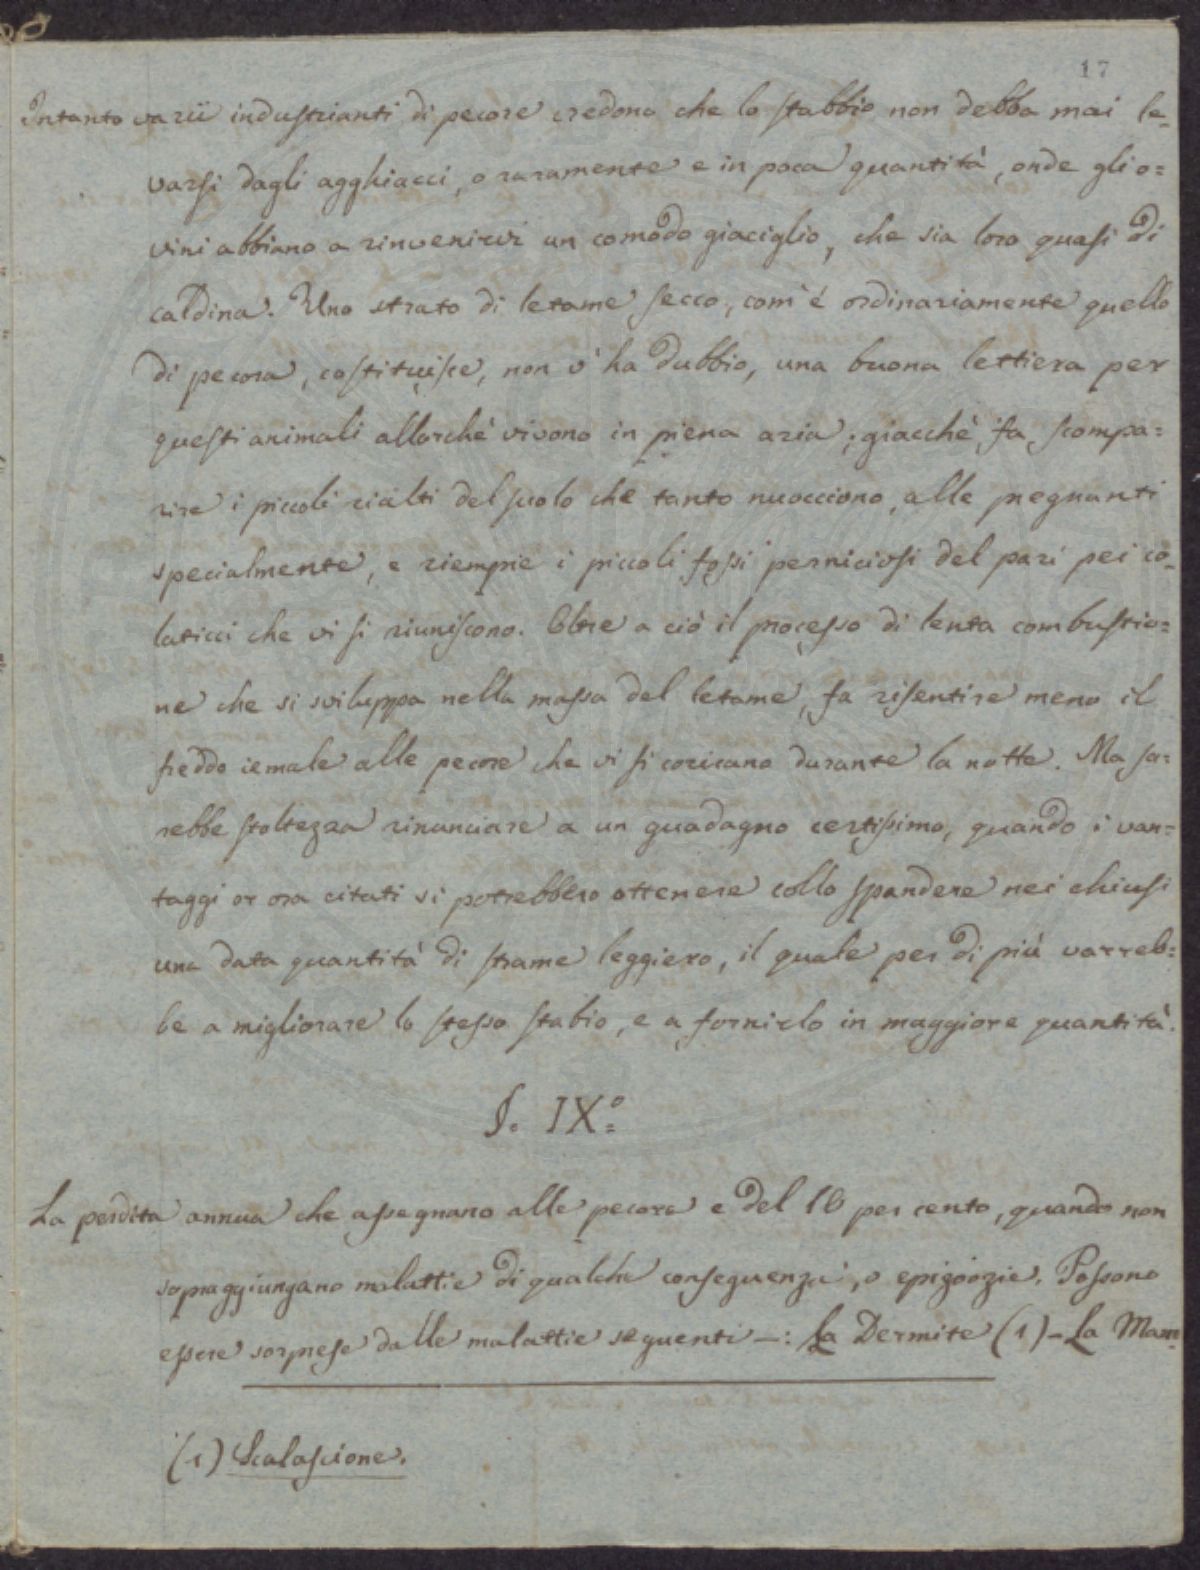 17
Intanto varii industrianti di pecore credono che lo stabbio non debba mai le-
varsi dagli agghiacci, o raramente e in poca quantità, onde gli o=
vini abbiano a rinvenirvi un comodo giaciglio, che sia loro quasi di
caldina. Uno strato di letame secco, com'é ordinariamente quello
di pecora, costituisce, non v'ha dubbio, una buona lettiera per
questi animali allorchè vivono in piena aria; giacchè fa scompa=
rire i piccoli rialti del suolo che tanto nuocciono, alle pregnanti
specialmente, e riempie i piccoli fossi perniciosi del pari pei co-
laticci che vi si riuniscono. Oltre a ciò il processo di lenta combustio=
ne che si sviluppa nella massa del letame, fa risentire meno il
freddo iemale alle pecore che vi si coricano durante la notte. Ma sa=
rebbe stoltezza rinunciare a un guadagno certissimo, quando i van=
taggi or ora citati si potrebbero ottenere collo spandere nei chiusi
una data quantità di strame leggiero, il quale per di più varreb=
be a migliorare lo stesso stabio, e a fornirlo in maggiore quantità.
§. IX.º
La perdita annua che assegnano alle pecore e del 16 per cento, quando non
sopraggiungano malattie di qualche conseguenza, o epizoozie. Possono
essere sorprese dalle malattie seguenti –: La Dermite (1) – La Mam=
(1) Scalascione.